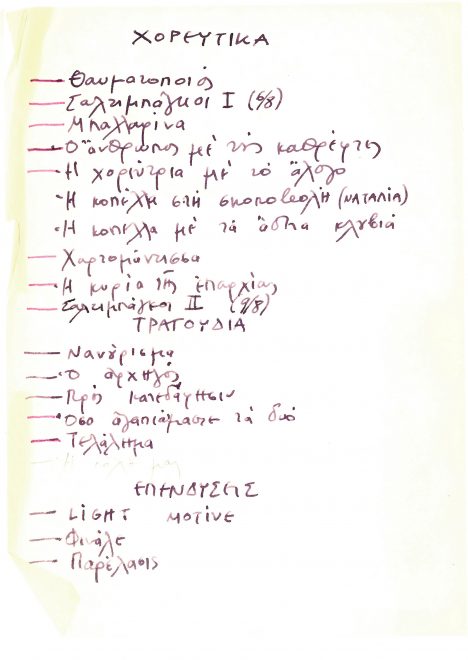 ΧΟΡΕΥΤΙΚΑ
— Θαυματοποιός
— Σαλτιμπάγκοι I (6/8)
— Μπαλλαρίνα
— Ὁ ἄνθρωπος μὲ τοὺς καθρέφτες
— Ἡ χορεύτρια μὲ τὸ ἄλογο
- Ἡ κοπέλλα στὴ σκοποβολὴ (ΝΑΤΑΛΙΑ)
- Ἡ κοπέλλα μὲ τὰ ἄδεια κλουβιά
— Χαρτομάντισσα
— Ἡ κυρία τῆς ἐπαρχίας
— Σαλτιμπάγκοι II (9/8)
ΤΡΑΓΟΥΔΙΑ
— Νανούρισμα
— Ὁ ἀρχηγὸς
— Πρὸς κατεδάφησιν
— Ὅσο ἀγαπιόμαστε τὰ δυό
— Τελάλημα
Ἡ μας
ΕΠΕΝΔΥΣΕΙΣ
— LIGHT MOTIVE
— Φινάλε
— Παρέλασις